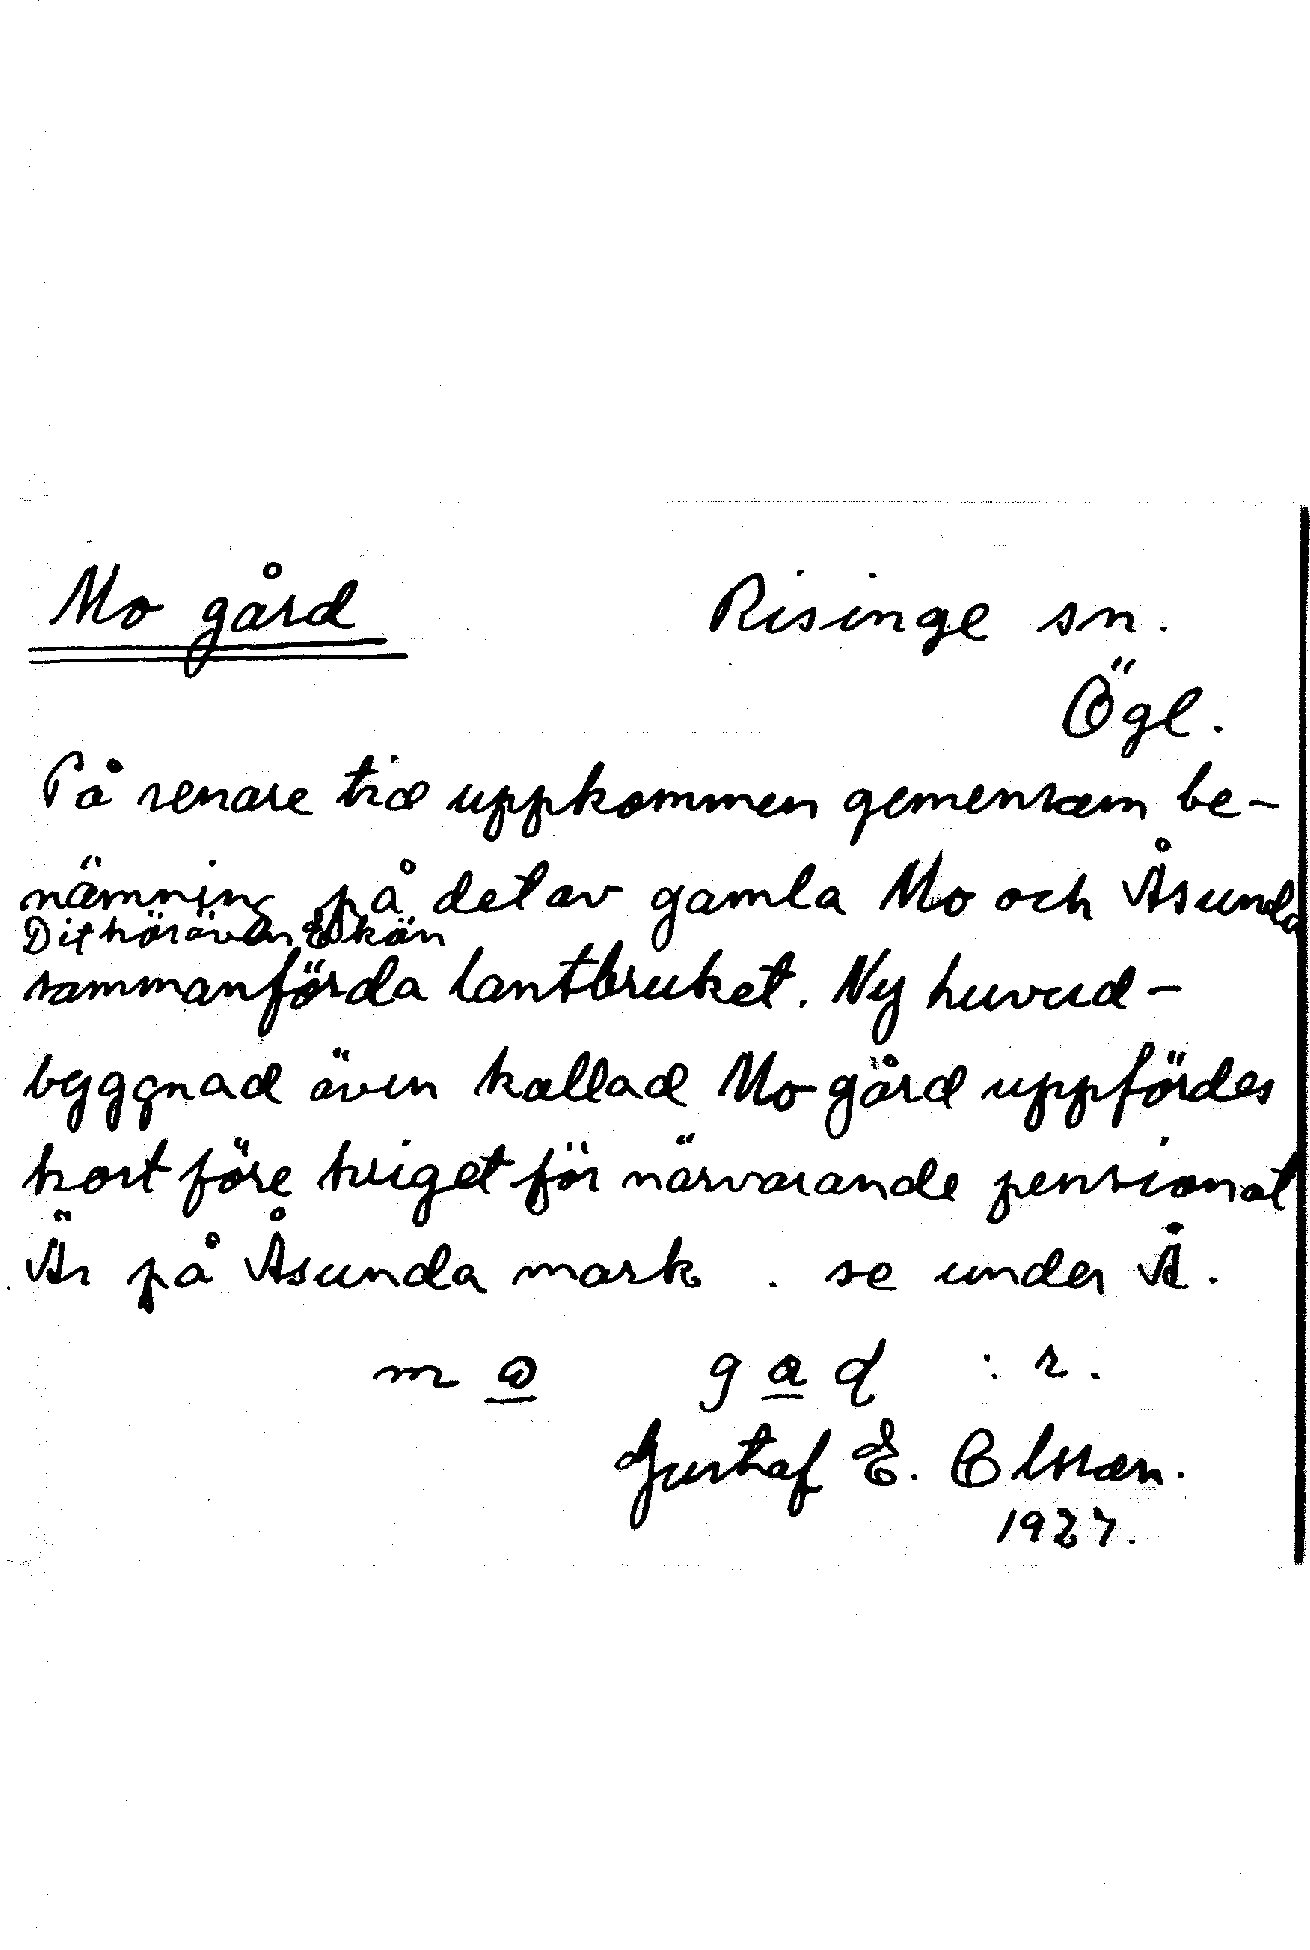 Mo gård
Risinge sn.
Ögl.
På senare tid uppkommen gemensam be-
nämning på det av gamla Mo och Åsunda
Dit hör även Ekön
sammanförda lantbruket. Ny huvud-
byggnad även kallad Mo gård uppfördes
kort före kriget för närvarande pensionat
Är på Åsunda mark . se under Å.
gad : r.
Gustaf E. Olsson.
1927.